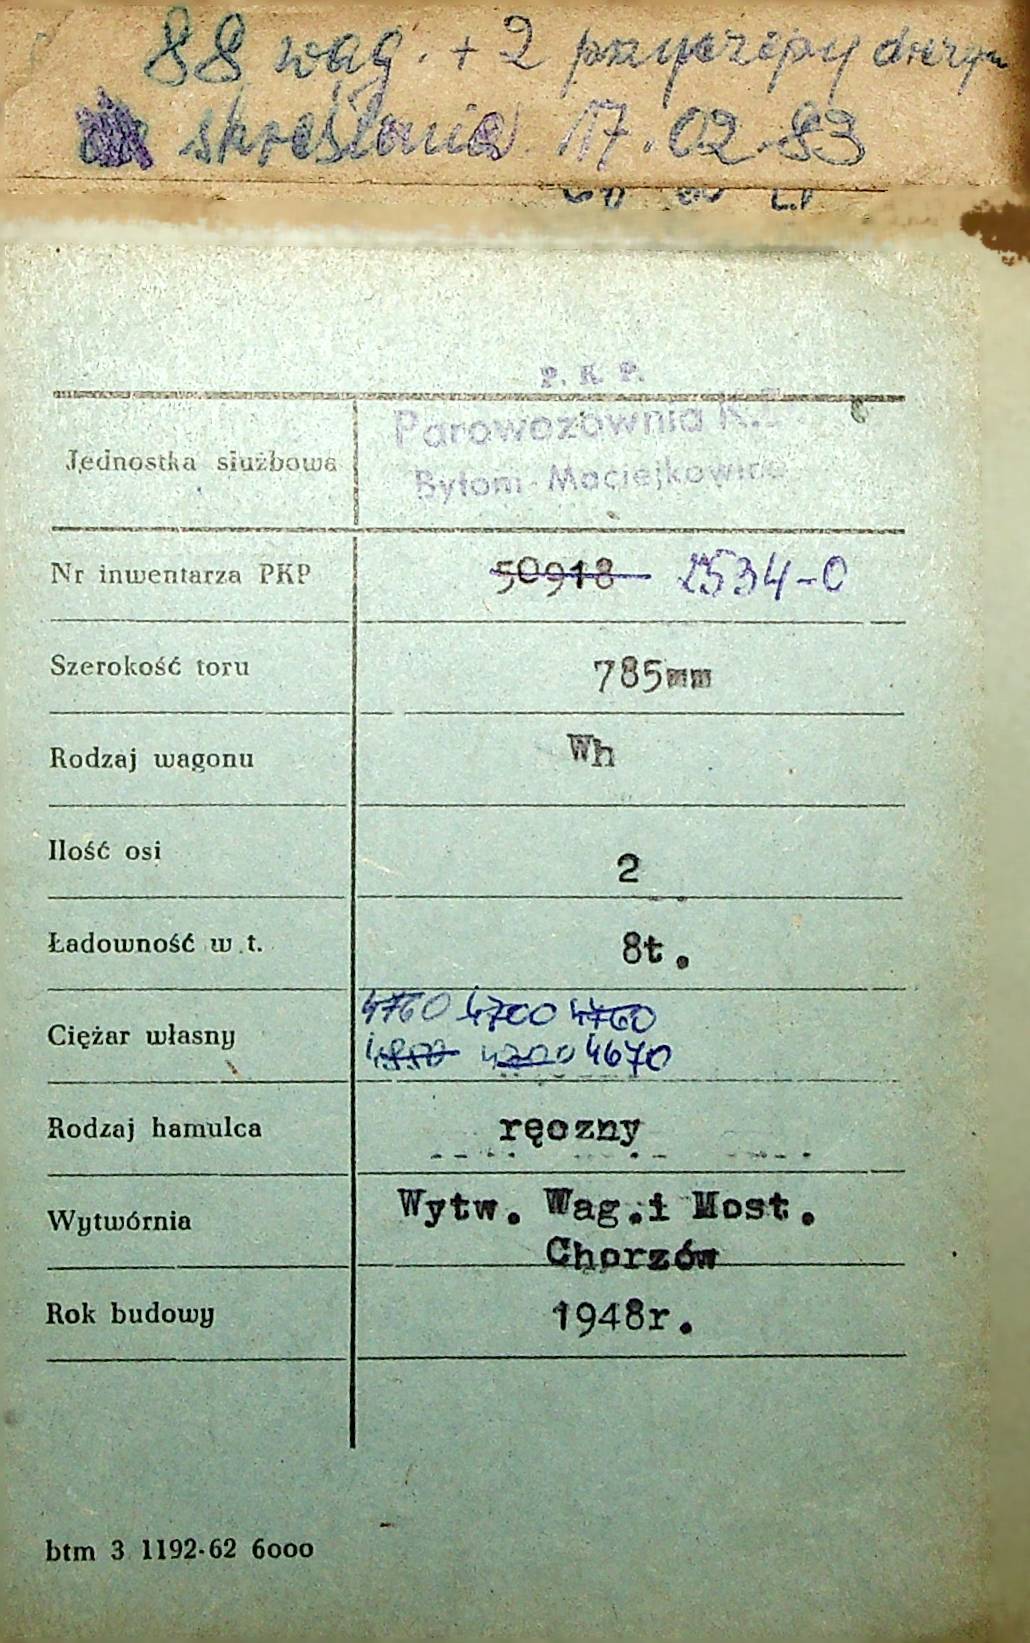 88 wag. + 2 przyczepy drezyn
skreślania 17.02.83
P. K. P.
Parowozownia K.D.
Bytom-Maciejkowice
Jednostka służbowa
Nr inwentarza PKP 50918 2534-0
Szerokość toru 785mm
Rodzaj wagonu Wh
Ilość osi 2
Ładowność w t. 8t.
4760 4700 4760
Ciężar własny 4670
Rodzaj hamulca ręczny
Wytwórnia Wytw. Wag.i Most.
Chorzów
Rok budowy 1948r.
btm 3 1192-62 6000